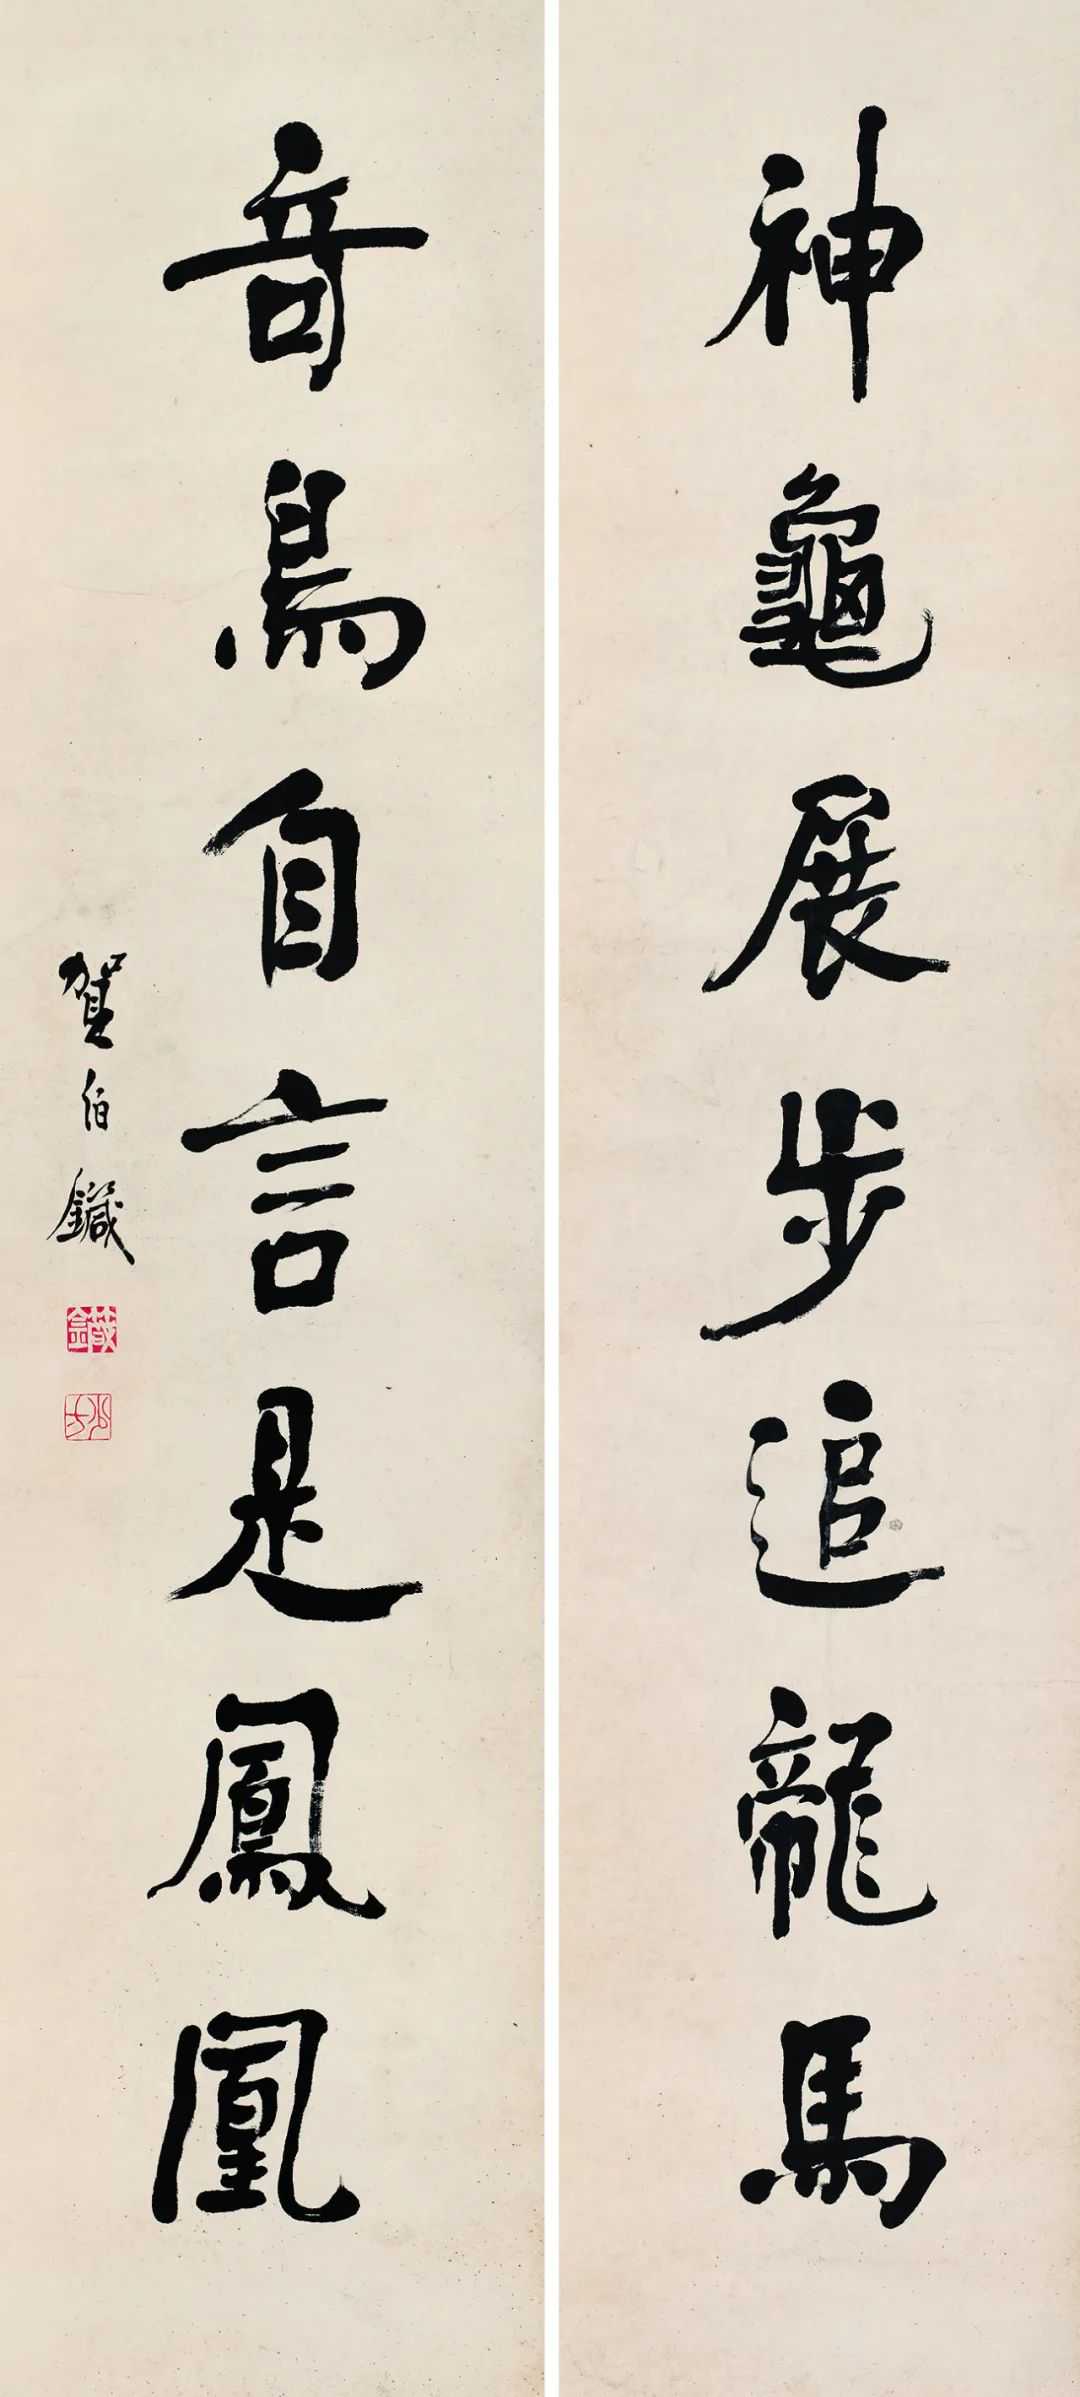 神龜展步追龍馬
奇鳥自言是鳳凰
賀伯鍼